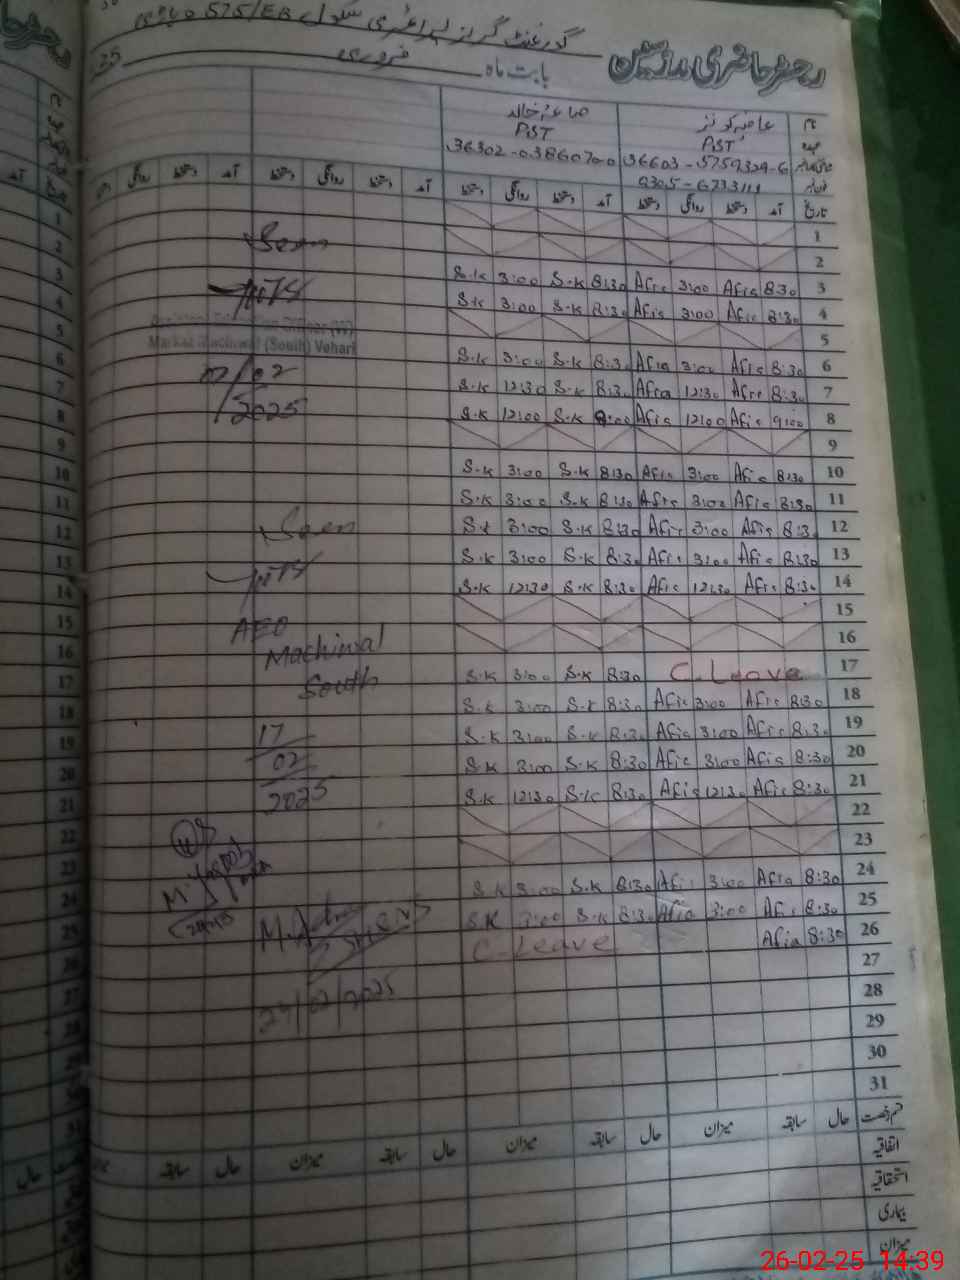 رجسٹر حاضری مدرسین
گورنمنٹ گرلز پرائمری سکول 575/EB وہاڑی
بابت ماہ فروری 25
نام عافیہ کوثر صاعقہ خالد
عہدہ PST PST
36603-5759329-6 36302-0386070-0
0305-6733111
تاریخ آمد دستخط روانگی دستخط آمد دستخط روانگی دستخط آمد دستخط روانگی دستخط آمد دستخط روانگی
1
2
3 8:30 Afia 3:00 Afia 8:30 S.K 3:00 S.K
4 8:30 Afia 3:00 Afia 8:30 S.K 3:00 S.K
5
6 8:30 Afia 3:00 Afia 8:30 S.K 3:00 S.K
7 8:30 Afia 12:30 Afia 8:30 S.K 12:30 S.K
8 9:00 Afia 12:00 Afia 9:00 S.K 12:00 S.K
9
10 8:30 Afia 3:00 Afia 8:30 S.K 3:00 S.K
11 8:30 Afia 3:00 Afia 8:30 S.K 3:00 S.K
12 8:30 Afia 3:00 Afia 8:30 S.K 3:00 S.K
13 8:30 Afia 3:00 Afia 8:30 S.K 3:00 S.K
14 8:30 Afia 12:30 Afia 8:30 S.K 12:30 S.K
15
16
17 C.Leave 8:30 S.K 3:00 S.K
18 8:30 Afia 3:00 Afia 8:30 S.K 3:00 S.K
19 8:30 Afia 3:00 Afia 8:30 S.K 3:00 S.K
20 8:30 Afia 3:00 Afia 8:30 S.K 3:00 S.K
21 8:30 Afia 12:30 Afia 8:30 S.K 12:30 S.K
22
23
24 8:30 Afia 3:00 Afia 8:30 S.K 3:00 S.K
25 8:30 Afia 3:00 Afia 8:30 S.K 3:00 S.K
26 8:30 Afia C.Leave
27
28
29
30
31
قسم رخصت حال سابقہ میزان حال سابقہ میزان حال سابقہ میزان حال سابقہ
اتفاقیہ
استحقاقیہ
بیماری
میزان
Seen
Assistant Education Officer (W)
Markaz Machiwal (South) Vehari
07/02
2025
Seen
AEO
Machiwal
South
17
02
2025
24/02/2025
26-02-25 14:39